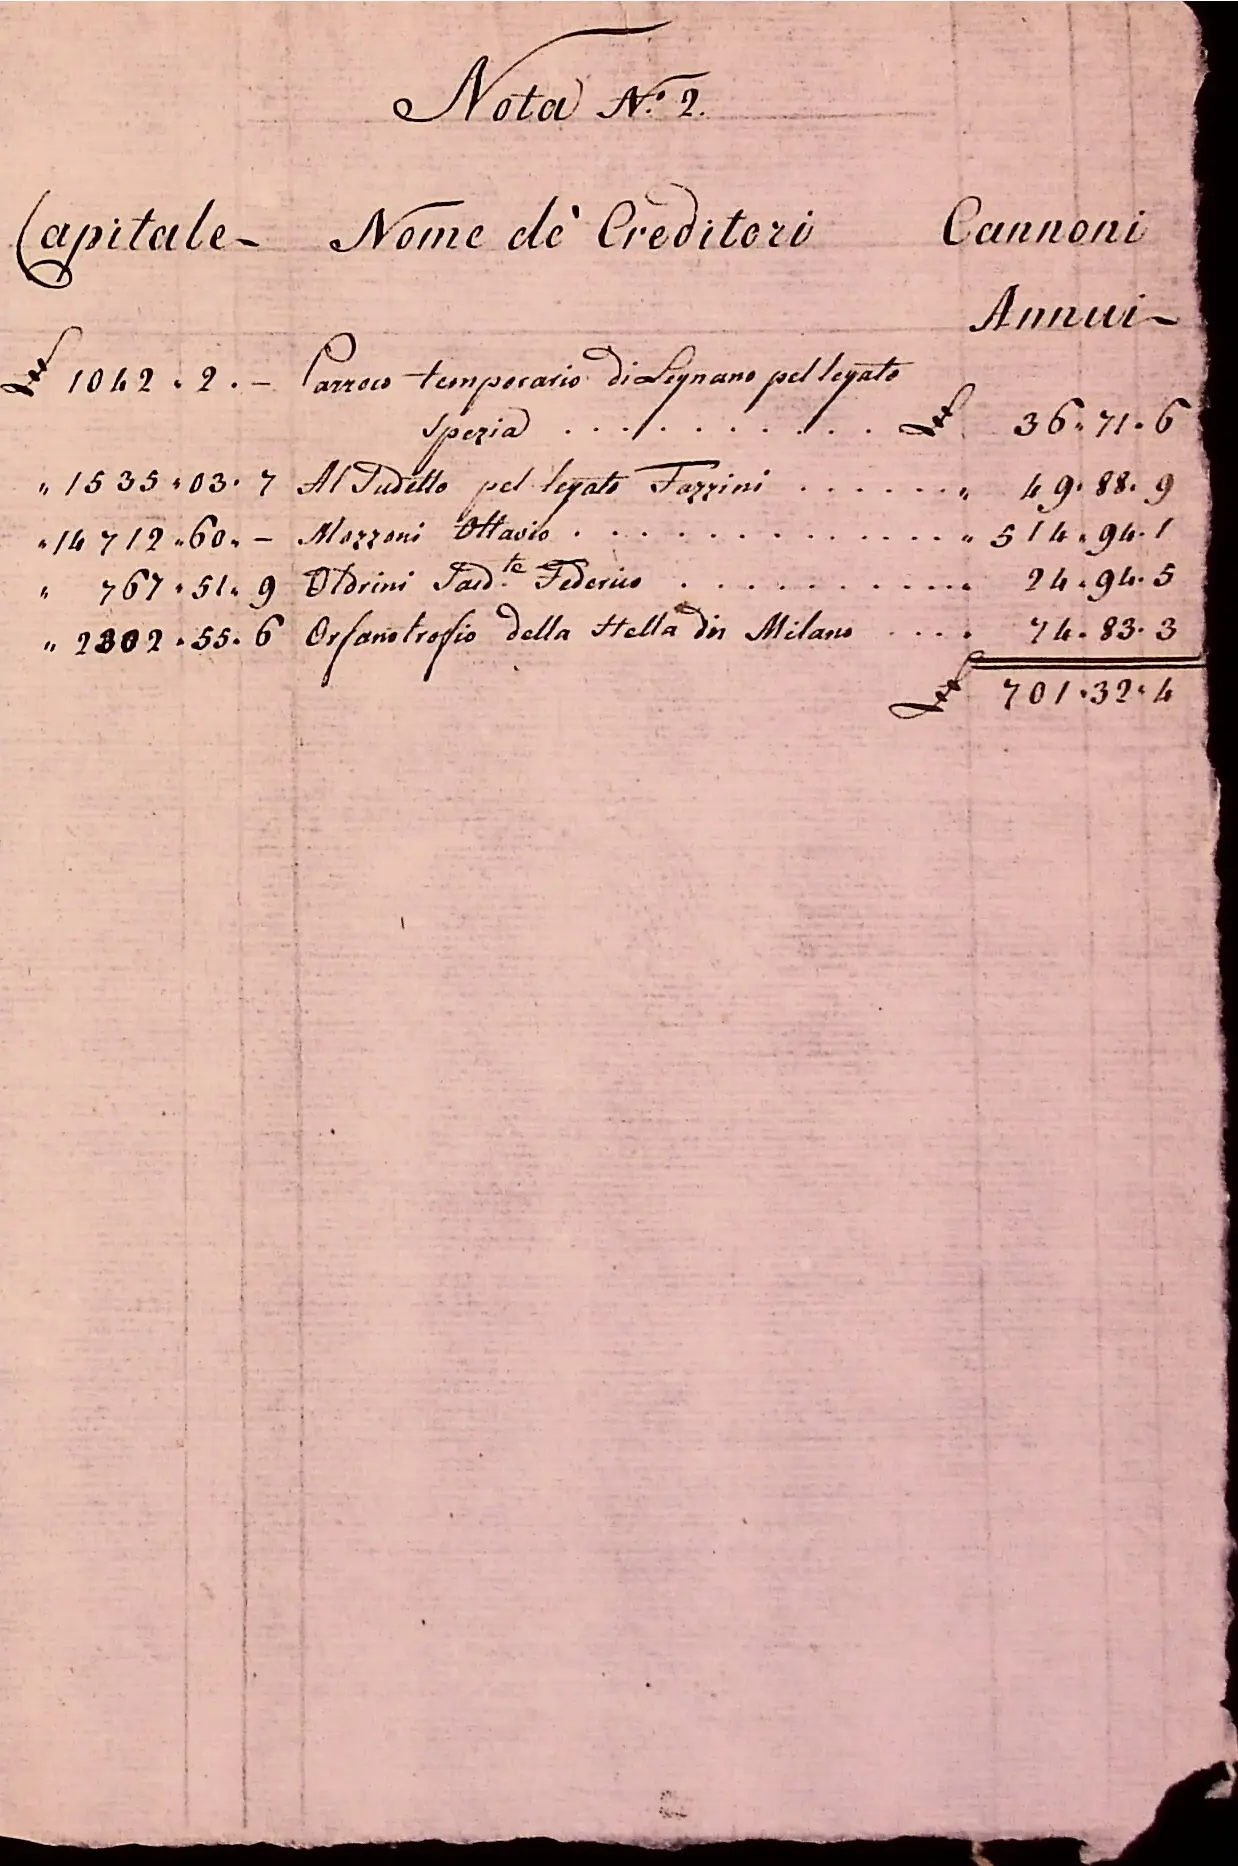 Nota N.° 2.
Capitale Nome de' Creditori Cannoni
Annui
1042. 2. — Parroco temporario di Legnano pel legato
Spezia . . . . . . . . . . 36. 71. 6
" 1535. 03. 7 Al Sudetto pel legato Fazzini . . . . . . " 49. 88. 9
" 14712. 60. — Mozzoni Ottavio . . . . . . . . . . . . " 514. 94. 1
" 767. 51. 9 Oldrini Federico . . . . . . . . . . 24. 94. 5
" 2302. 55. 6 Orfanotrofio della Stella in Milano . . . . 74. 83. 3
701. 32. 4